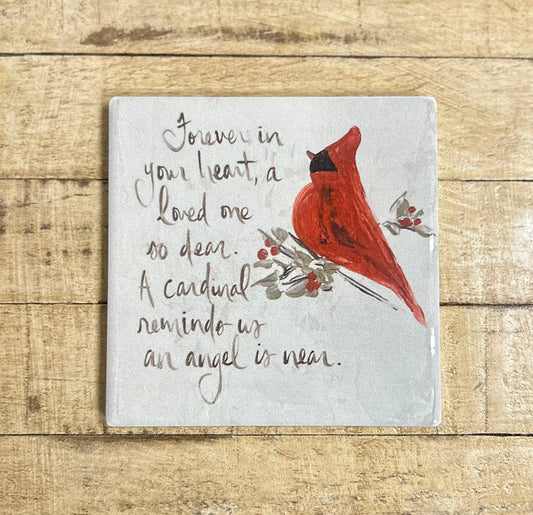 Forever in
your heart, a
loved one
so dear.
A cardinal
reminds us
an angel is near.